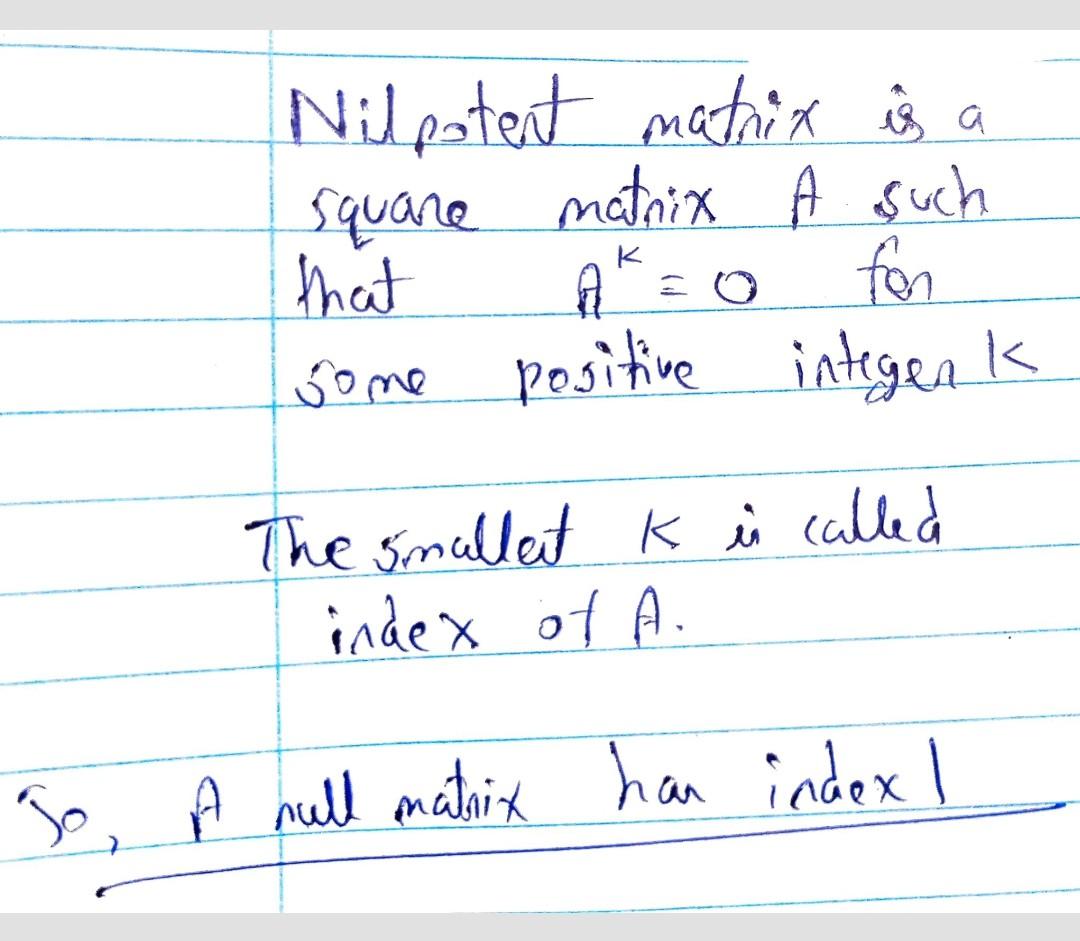 Nilpotent matrix is a
square matrix A such
that A^K = 0 for
some positive integer K
The smallest K is called
index of A.
So, A null matrix has index 1